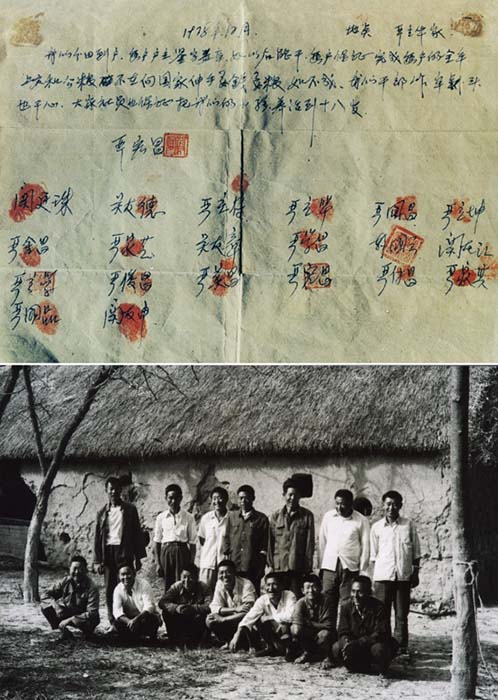 1978年12月 地点 严立华家
我们分田到户,每户户主签字盖章,如以后能干,每户保证完成每户的全年
上交和公粮,不在向国家伸手要钱要粮,如不成,我们干部作牢刹头
也干心,大家社员也保证把我们的小孩养活到十八岁.
严宏昌
关廷珠 关友德 严立付 严立华 严国昌 严立坤
严金昌 严家芝 关友章 严学昌 韩国云 关友江
严立学 严俊昌 严美昌 严宏昌 严付昌 严家其
严国品 关友申